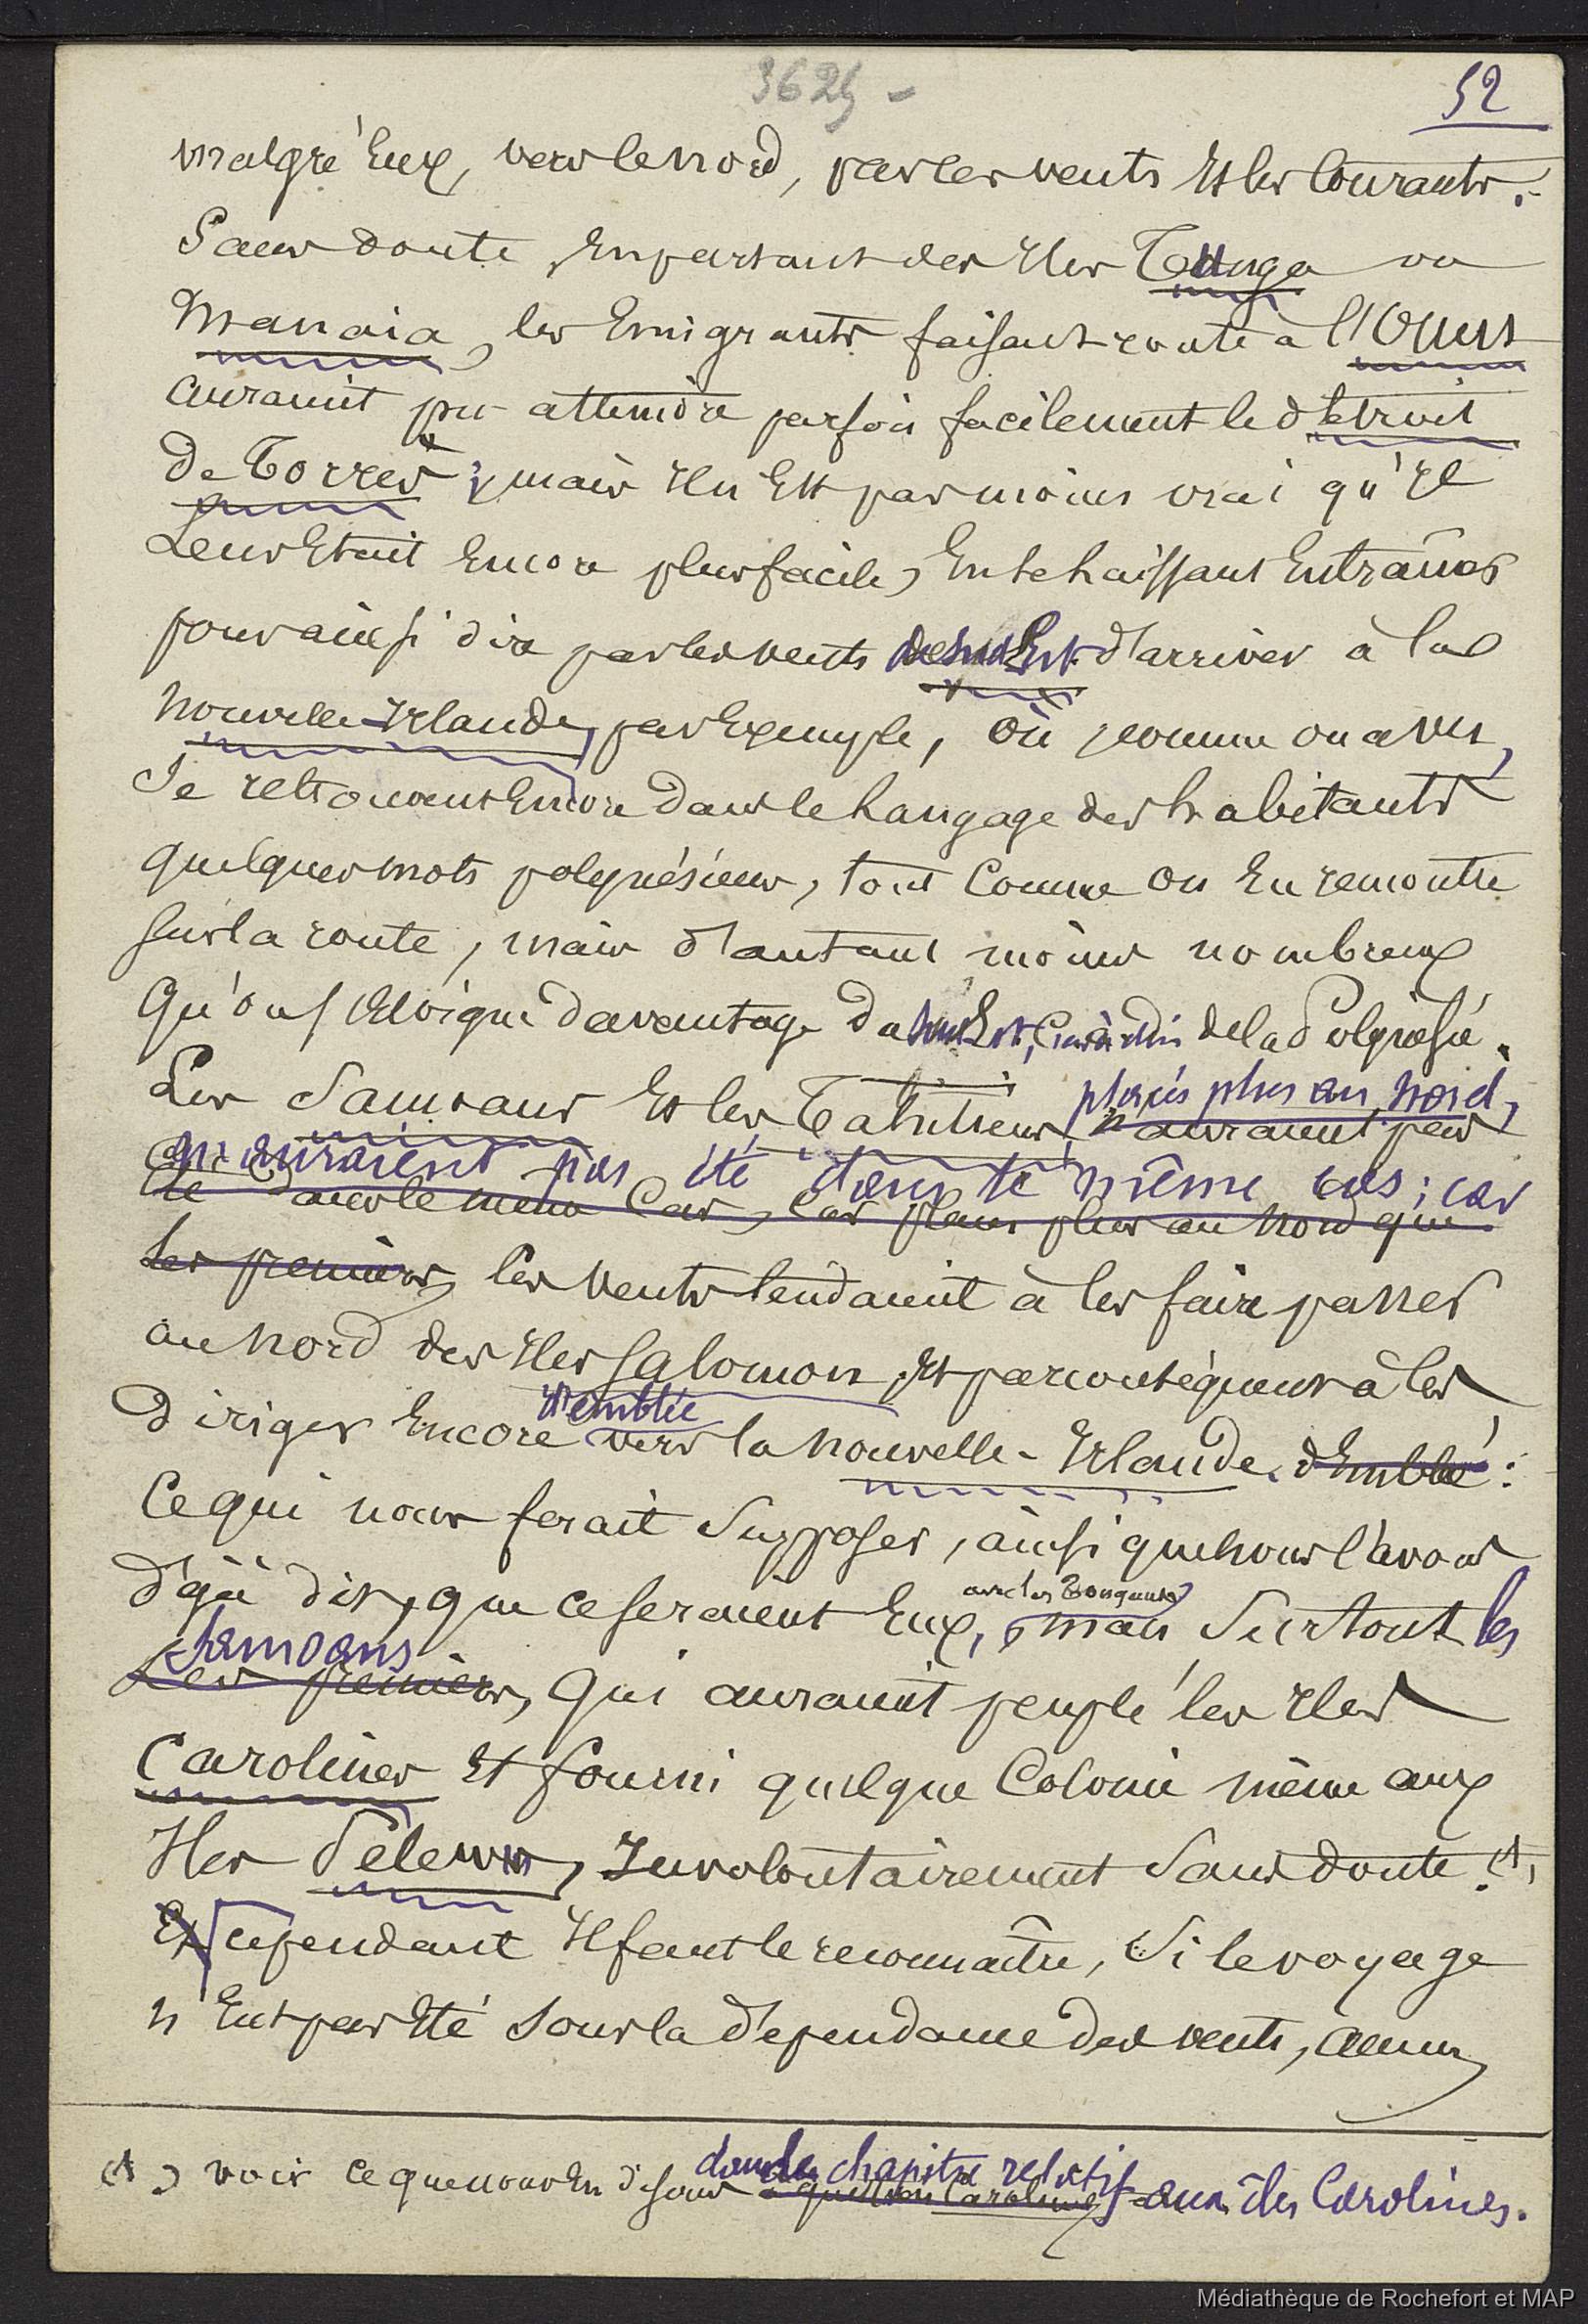 3625 -
52
malgré Eux, vers le nord, par les vents Et les Courants.
Sans doute, En partant des Iles Tunga ou
Manaia, les Emigrants faisant route à l'Ouest
auraient pu atteindre parfois facilement le détroit
de Torrès ; mais Il n'Est pas moins vrai qu'Il
Leur Etait Encore plus facile, En se laissant Entraîner
pour ainsi dire par les vents de Sud Est d'arriver à la
nouvelle-Irlande, par Exemple, où, comme on a vu,
Se retrouvent Encore dans le Langage des habitants
quelques mots polynésiens, tout Comme on En rencontre
sur la route, mais d'autant moins nombreux
Qu'on s'Eloigne davantage du Sud Est, C'est-à-dire de la Polynésie.
Les Samoans Et les Tahitiens, placés plus au nord,
n'auraient pas
n'auraient pas été dans le même cas ; car
Eté dans le même Cas, car placés plus au nord que
les premiers, les vents tendaient à les faire passer
au nord des Iles Salomon, Et par conséquent à les
d'emblée
diriger Encore vers la nouvelle-Irlande. d'Emblée :
Ce qui nous ferait Supposer, ainsi que nous l'avons
déjà dit, que ce seraient Eux, avec les Tongans, mais Surtout les
Samoans
Les premiers, Qui auraient peuplé les Iles
Carolines Et fourni quelque Colonie même aux
Iles Peleww, Involontairement Sans doute. (1)
Et Cependant Il faut le reconnaître, Si le voyage
n'Eut pas Eté sous la dépendance des vents,
(1) voir ce que nous En disons dans le chapitre relatif aux îles Carolines.
question Carolines
Médiathèque de Rochefort et MAP